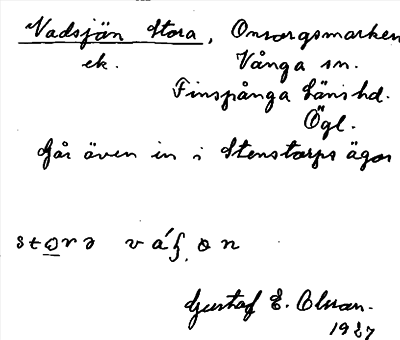 Vadsjän Stora, Onsorgsmarken
ek. Vånga sn.
Finspånga läns hd.
Ögl.
Går även in i Stenstorps ägor
Gustaf E. Olsson.
1927